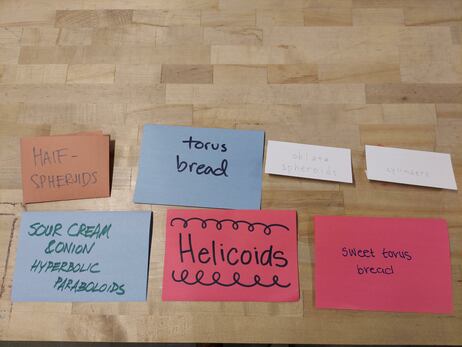 HALF-
SPHEROIDS
torus
bread
oblate
spheroids
cylinders
SOUR CREAM
& ONION
HYPERBOLIC
PARABOLOIDS
Helicoids
sweet torus
bread